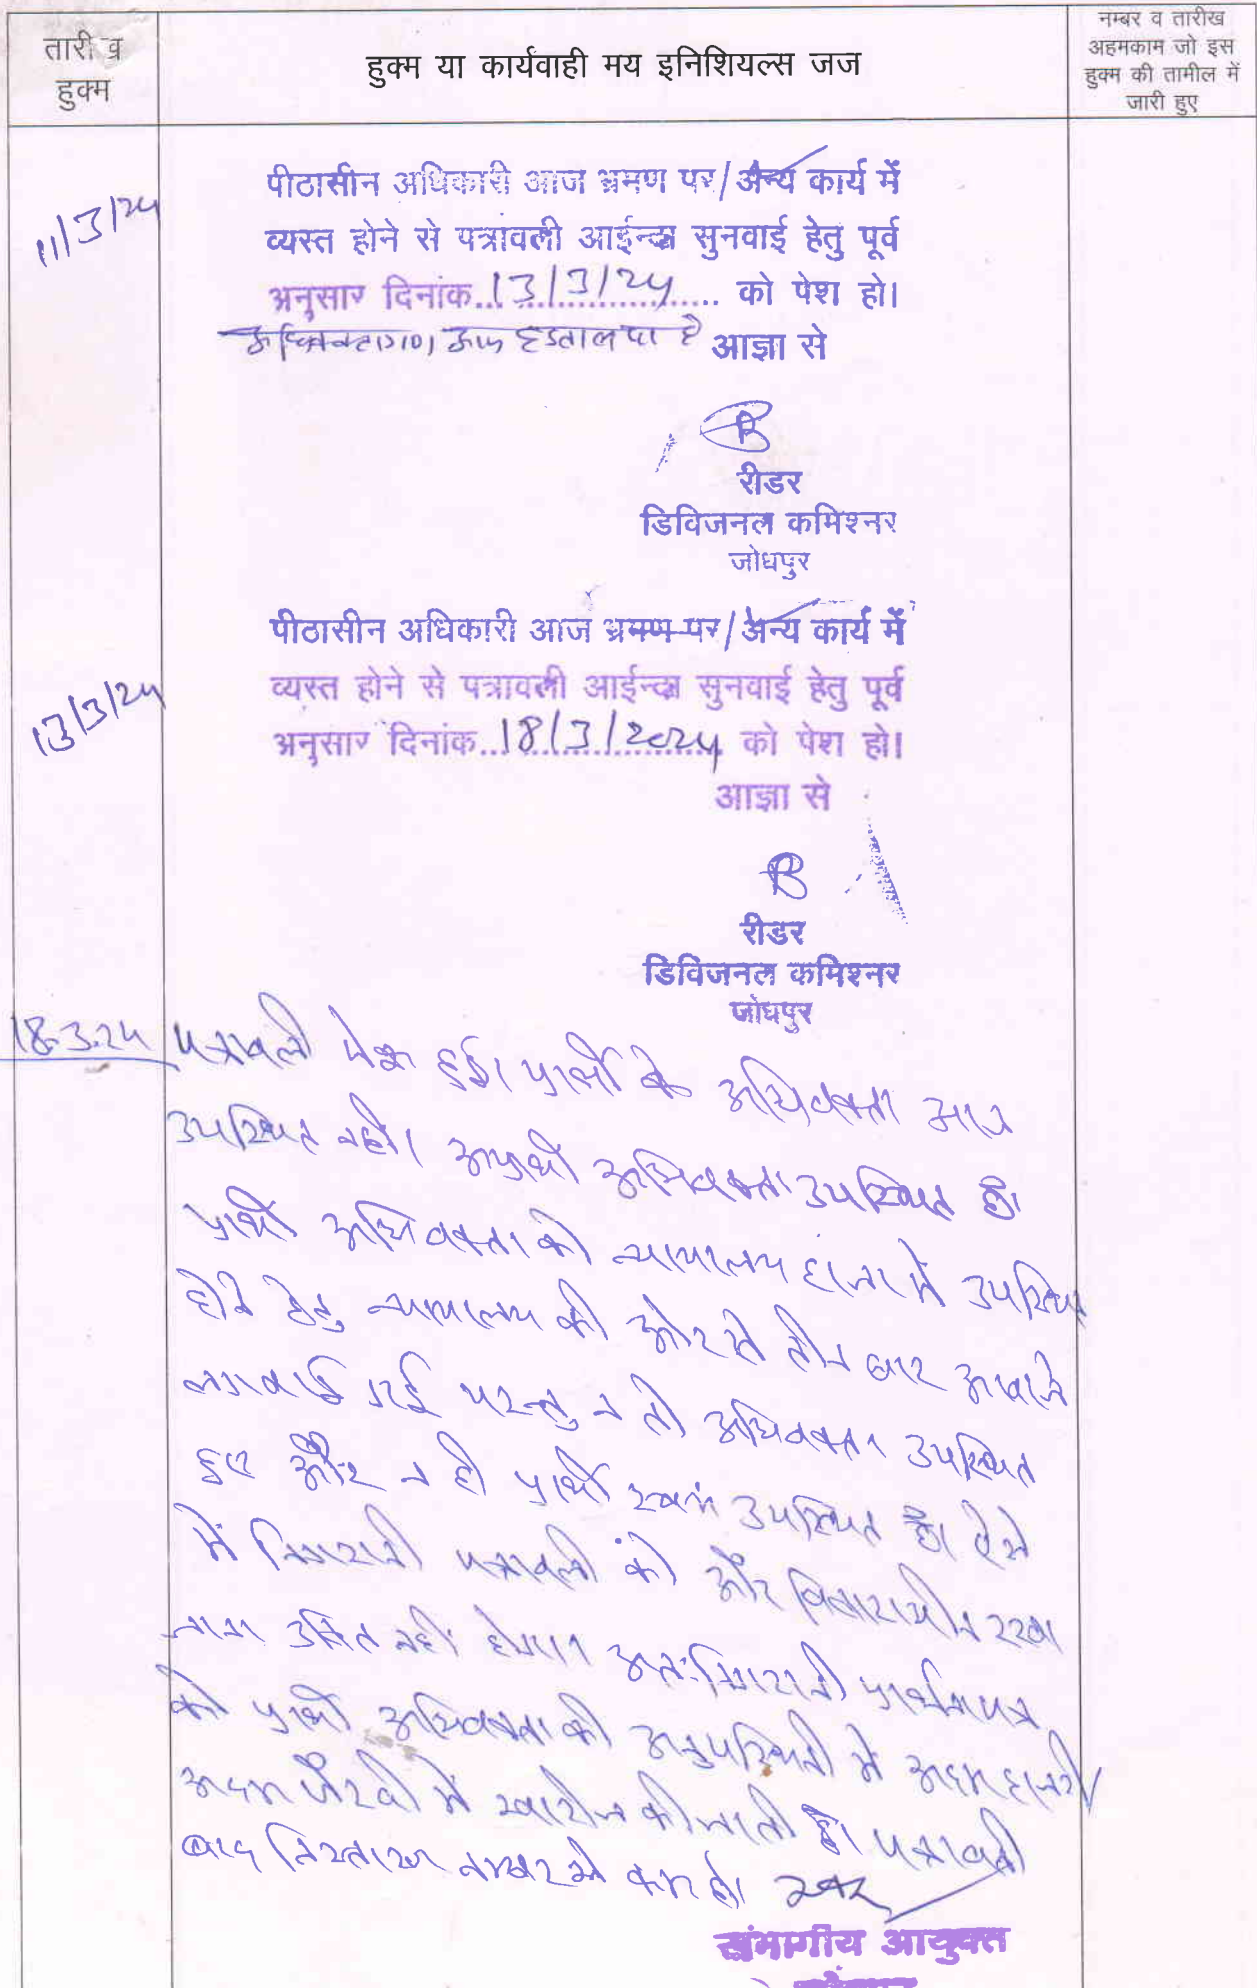 तारी व
हुक्म
हुक्म या कार्यवाही मय इनिशियल्स जज
नम्बर व तारीख
अहमकाम जो इस
हुक्म की तामील में
जारी हुए
11/3/24
पीठासीन अधिकारी आज भ्रमण पर/अन्य कार्य में
व्यस्त होने से पत्रावली आईन्दा सुनवाई हेतु पूर्व
अनुसार दिनांक...13/3/24... को पेश हो।
अधिवक्तागण आज हडताल पर है आज्ञा से
रीडर
डिविजनल कमिश्नर
जोधपुर
13/3/24
पीठासीन अधिकारी आज भ्रमण पर/अन्य कार्य में
व्यस्त होने से पत्रावली आईन्दा सुनवाई हेतु पूर्व
अनुसार दिनांक...18/3/2024 को पेश हो।
आज्ञा से
रीडर
डिविजनल कमिश्नर
जोधपुर
18.3.24 पत्रावली पेश हुई। प्रार्थी के अधिवक्ता आज
उपस्थित नहीं। अप्रार्थी अधिवक्ता उपस्थित है।
प्रार्थी अधिवक्ता को न्यायालय हाजा में उपस्थित
होने हेतु न्यायालय की ओर से तीन बार आवाजे
लगवाई गई परन्तु न तो अधिवक्ता उपस्थित
हुए और न ही प्रार्थी स्वयं उपस्थित है। ऐसे
में निगरानी पत्रावली को और विचाराधीन रखा
जाना उचित नहीं होगा। अतः निगरानी प्रार्थनापत्र
को प्रार्थी अधिवक्ता की अनुपस्थिती में अदम हाजरी
अदम पैरवी में खारीज की जाती है। पत्रावली
बाद निस्तारण नम्बर से कम हो।
संभागीय आयुक्त